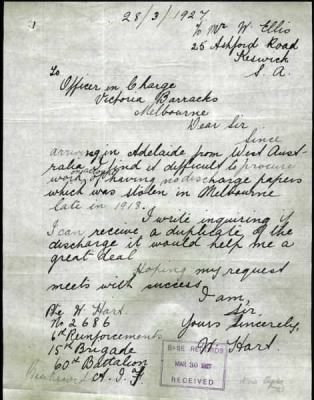 1
28/3/1927
To Mr W. Ellis
25 Ashford Road
Keswick
S. A.
To
Officer in Charge
Victoria Barracks
Melbourne
Dear Sir
Since
arriving in Adelaide from West Aust-
ralia I find it difficult to procure
work on account of having no discharge papers
which was stolen in Melbourne
late in 1918.
I write inquiring if
I can receive a duplicate of the
discharge it would help me a
great deal
Hoping my request
meets with success
I am,
Sir,
Yours Sincerely,
W. Hart.
Pte W. Hart
No 2686
6th Reinforcements
15th Brigade
60th Battalion
A. I. F.
BASE RECORDS
MAR 30 1927
RECEIVED